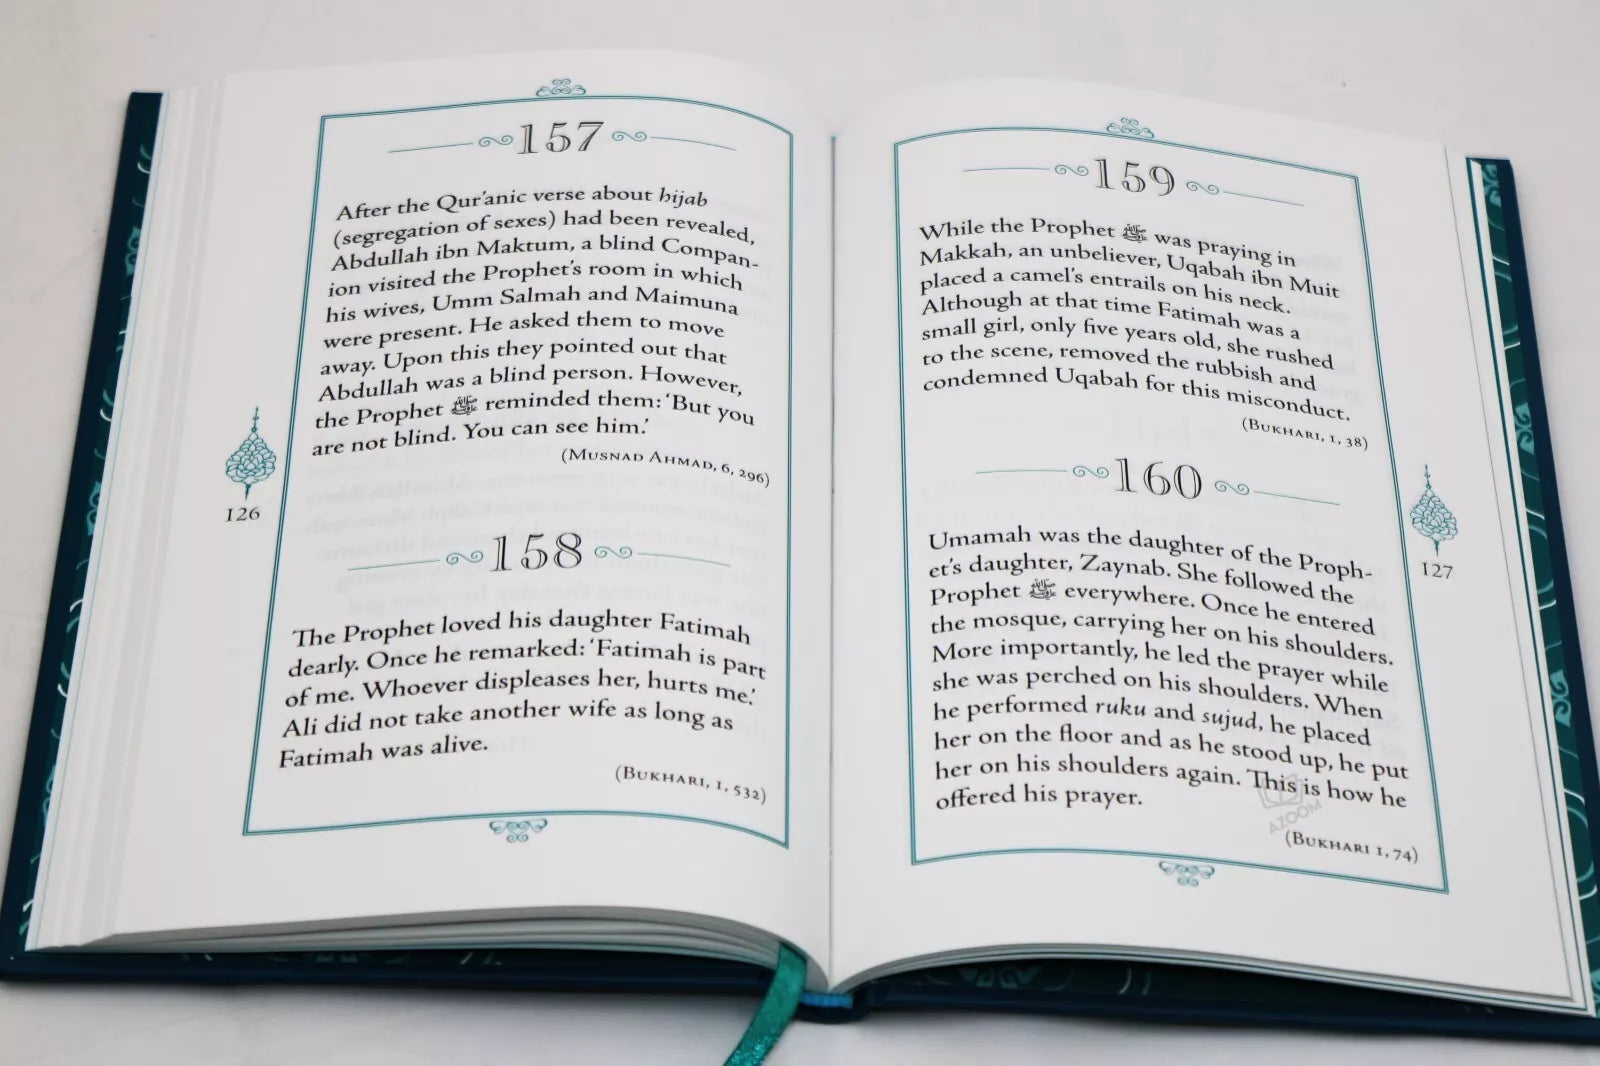 157
After the Qur'anic verse about hijab
(segregation of sexes) had been revealed,
Abdullah ibn Maktum, a blind Compan-
ion visited the Prophet's room in which
his wives, Umm Salmah and Maimuna
were present. He asked them to move
away. Upon this they pointed out that
Abdullah was a blind person. However,
the Prophet ﷺ reminded them: 'But you
are not blind. You can see him.'
(Musnad Ahmad, 6, 296)
126
158
The Prophet loved his daughter Fatimah
dearly. Once he remarked: 'Fatimah is part
of me. Whoever displeases her, hurts me.'
Ali did not take another wife as long as
Fatimah was alive.
(Bukhari, 1, 532)
159
While the Prophet ﷺ was praying in
Makkah, an unbeliever, Uqabah ibn Muit
placed a camel's entrails on his neck.
Although at that time Fatimah was a
small girl, only five years old, she rushed
to the scene, removed the rubbish and
condemned Uqabah for this misconduct.
(Bukhari, 1, 38)
160
Umamah was the daughter of the Proph-
et's daughter, Zaynab. She followed the
Prophet ﷺ everywhere. Once he entered
the mosque, carrying her on his shoulders.
More importantly, he led the prayer while
she was perched on his shoulders. When
he performed ruku and sujud, he placed
her on the floor and as he stood up, he put
her on his shoulders again. This is how he
offered his prayer.
(Bukhari 1, 74)
127
AZOOM